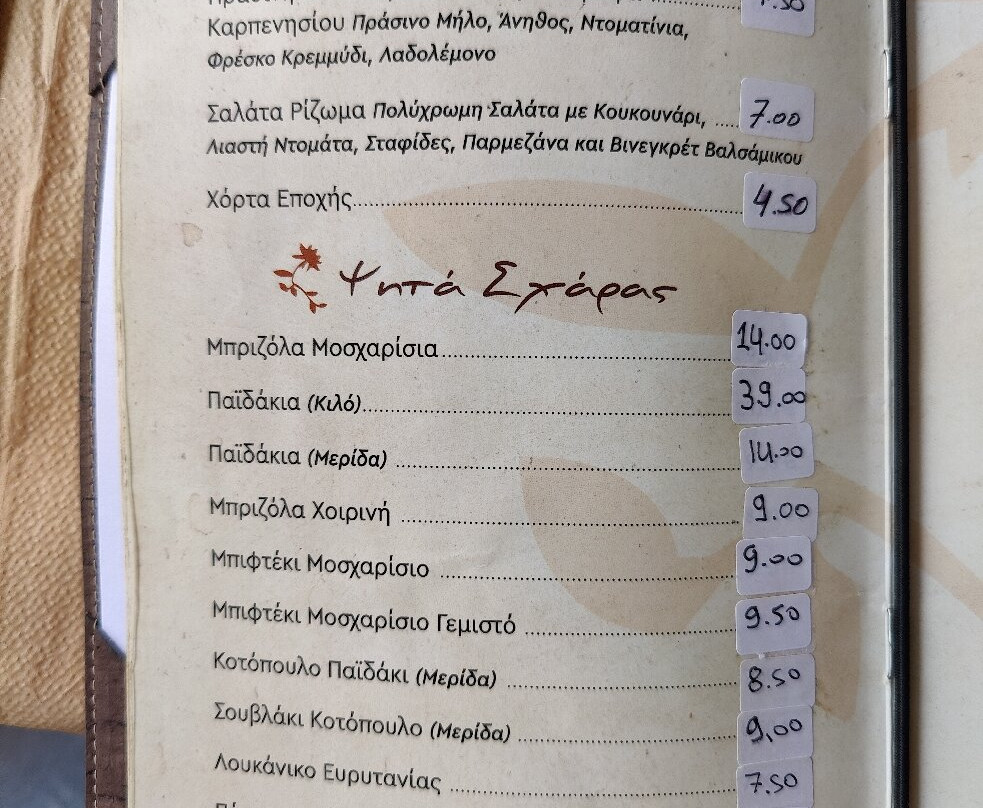 Καρπενησίου Πράσινο Μήλο, Άνηθος, Ντοματίνια,
Φρέσκο Κρεμμύδι, Λαδολέμονο
Σαλάτα Ρίζωμα Πολύχρωμη Σαλάτα με Κουκουνάρι, ..... 7.00
Λιαστή Ντομάτα, Σταφίδες, Παρμεζάνα και Βινεγκρέτ Βαλσάμικου
Χόρτα Εποχής 4.50
Ψητά Σχάρας
Μπριζόλα Μοσχαρίσια 14.00
Παϊδάκια (Κιλό) 39.00
Παϊδάκια (Μερίδα) 14.00
Μπριζόλα Χοιρινή 9.00
Μπιφτέκι Μοσχαρίσιο 9.00
Μπιφτέκι Μοσχαρίσιο Γεμιστό 9.50
Κοτόπουλο Παϊδάκι (Μερίδα) 8.50
Σουβλάκι Κοτόπουλο (Μερίδα) 9,00
Λουκάνικο Ευρυτανίας 7.50